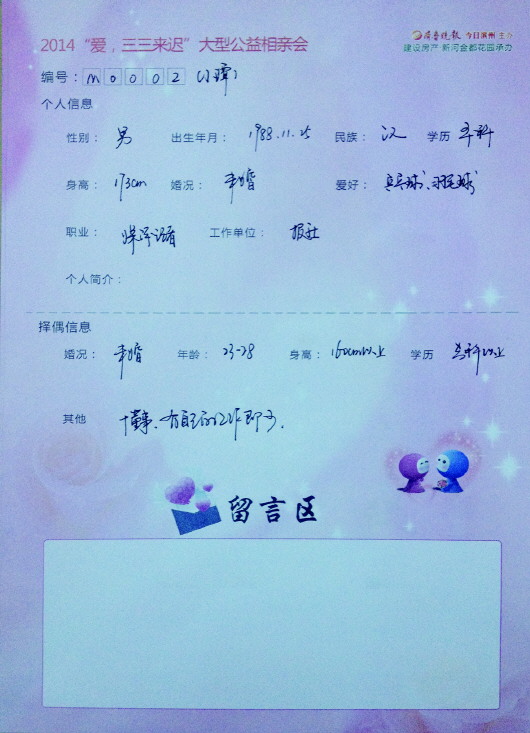 2014“爱，三三来迟”大型公益相亲会
齐鲁晚报 今日滨州 主办
建设房产·新河金都花园承办
编号：M0002
个人信息
性别：男 出生年月：1988.11.25 民族：汉 学历 本科
身高：173cm 婚况：未婚 爱好：乒乓球、羽毛球
职业：媒体 工作单位：报社
个人简介：
择偶信息
婚况：未婚 年龄：23-28 身高：160cm以上 学历 专科以上
其他 懂事、有自己的工作即可.
留言区